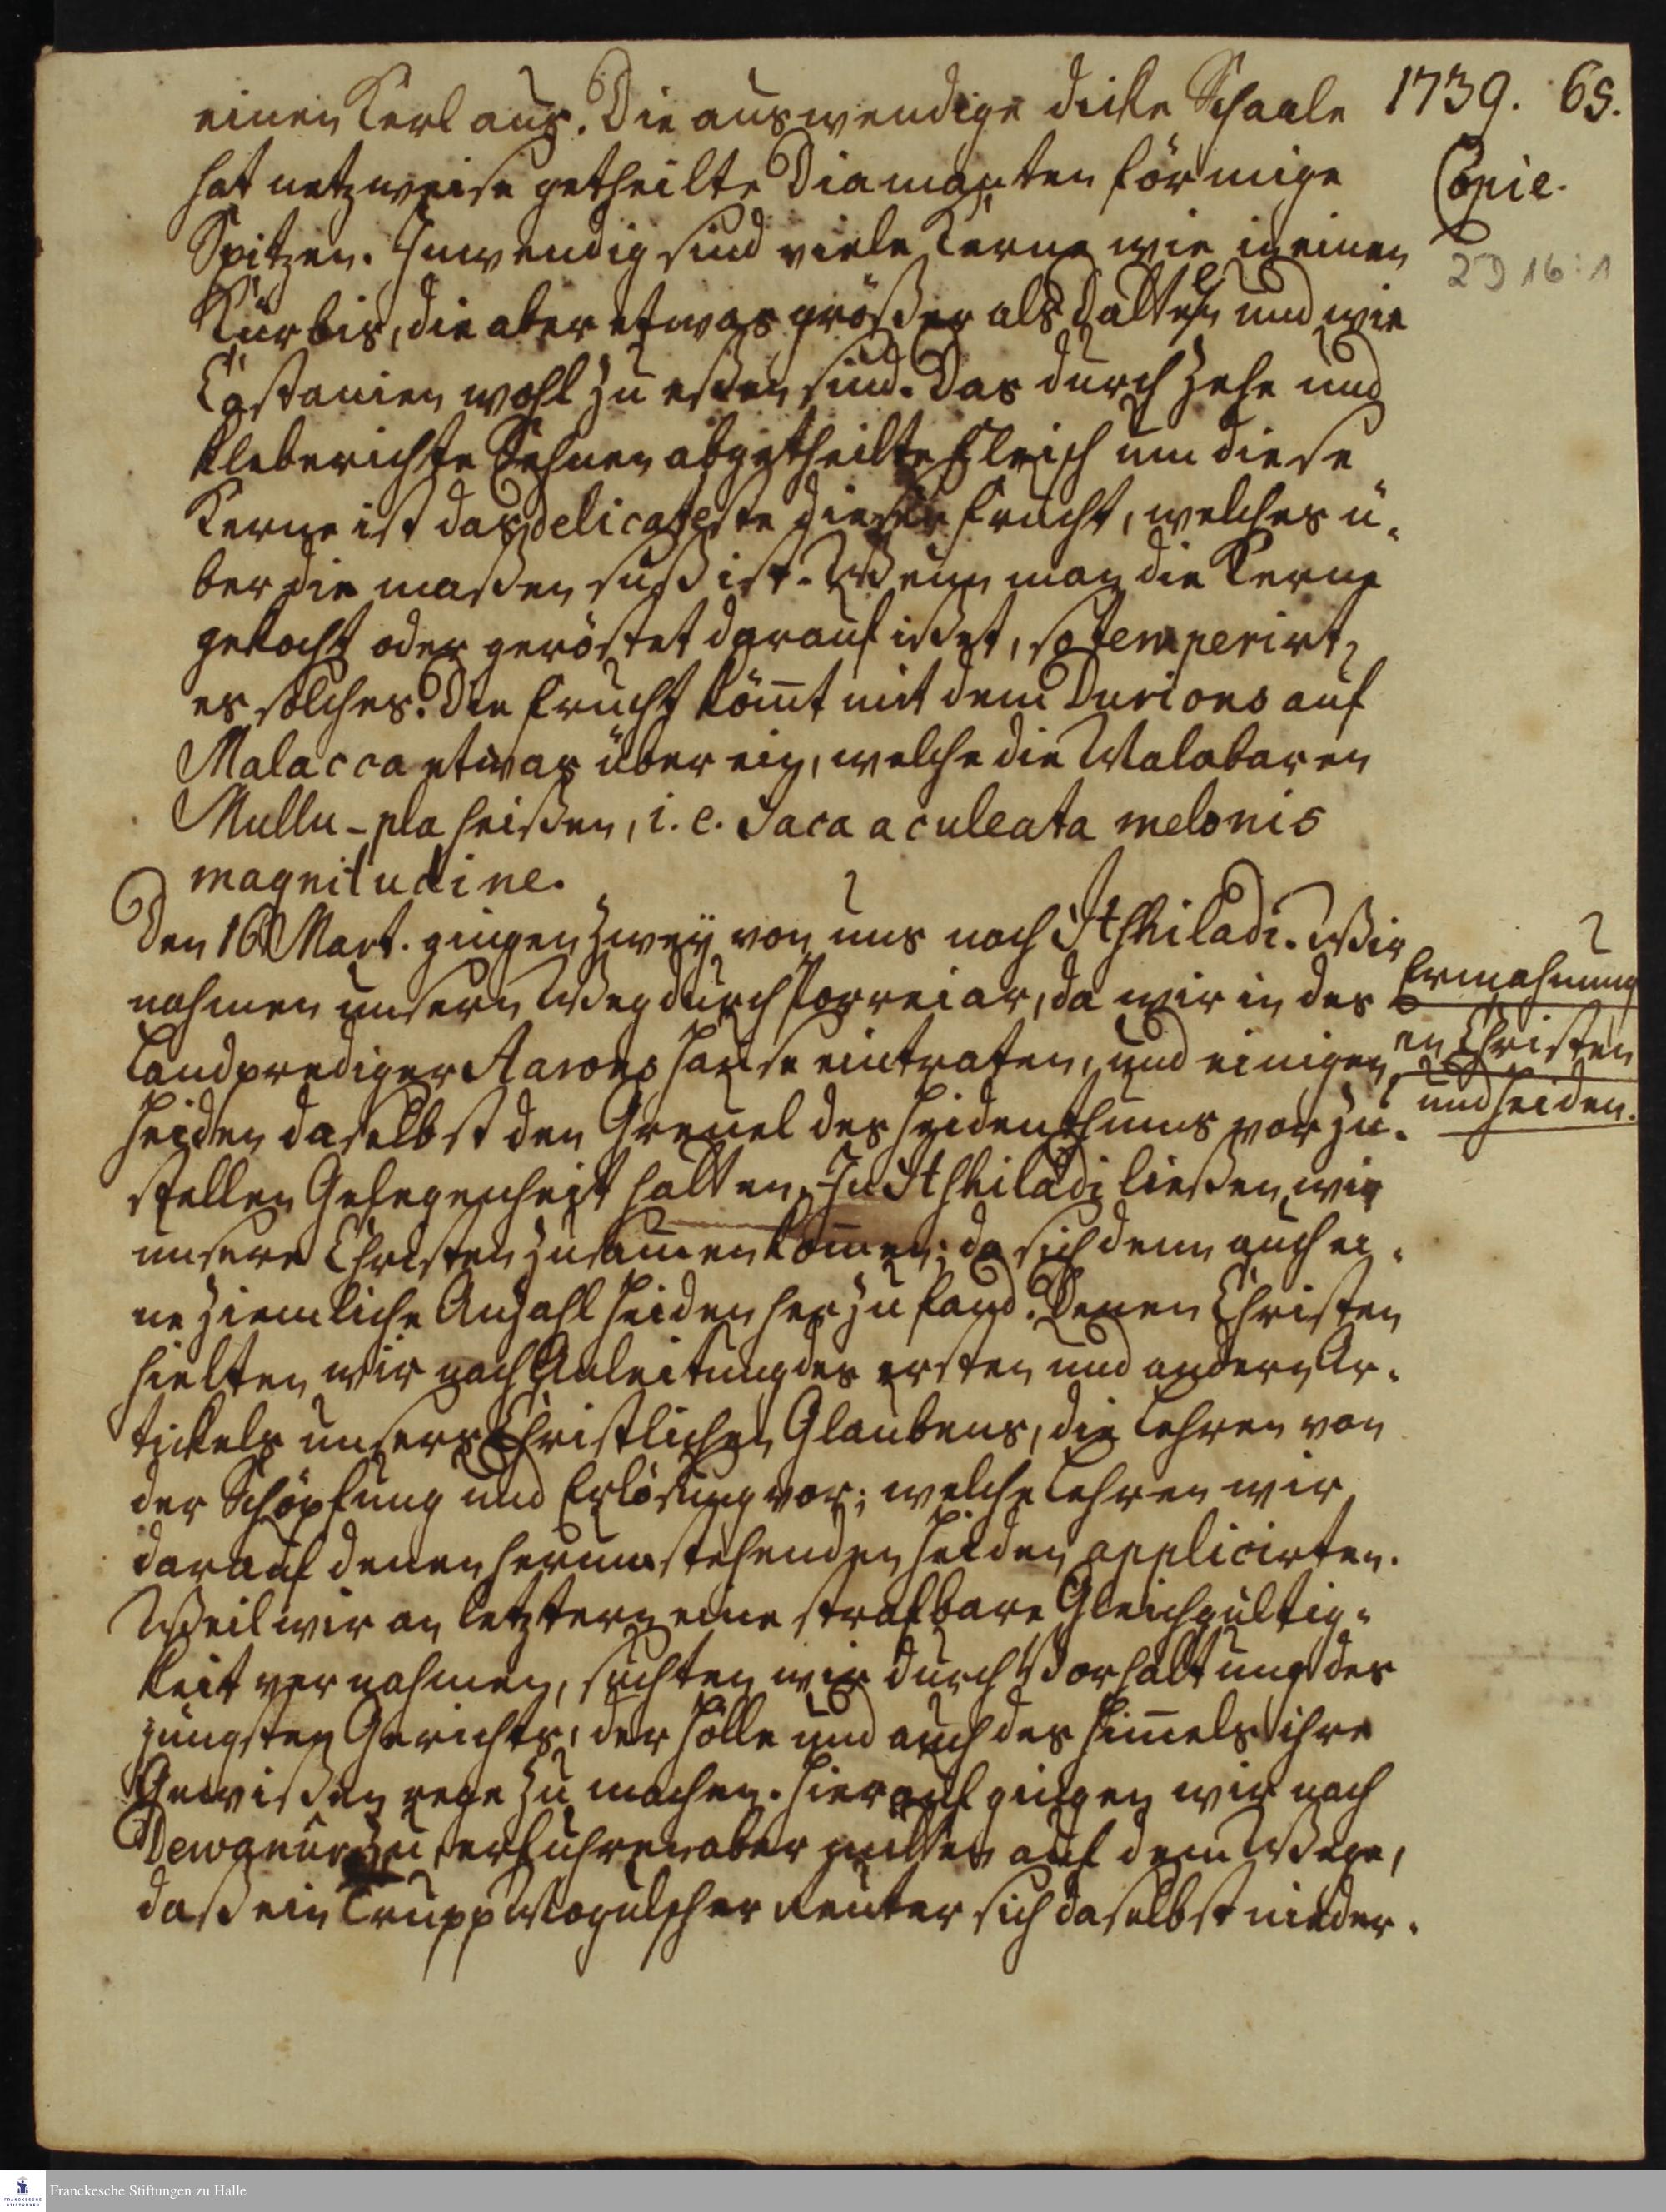 einen Kerl aus. Die auswendige dicke Schaale
1739. 65.
Copie.
2D 16:1
hat netzweise getheilte Diamanten förmige
Spitzen. Inwendig sind viele Kerne wie in einen
Kürbis, die aber etwas größer als Dattel und wie
Castanien wohl zu eßen sind. Das durch zehe und
kleberichte Sehnen abgetheilte Fleisch um diese
Kerne ist das delicateste dieser Frucht, welches ü-
ber die maßen süß ist. Wenn man die Kerne
gekocht oder geröstet darauf ißet, so temperirt
es solches. Die Frucht kömt mit dem Durions auf
Malacca etwas über ein, welche die Malabaren
Mullu-pla heißen, i. e. Jaca aculeata melonis
magnitudine.
Den 16 Mart. gingen zwey von uns nach Itshiladi. Wir
nahmen unsern Weg durch Porreiar, da wir in des
Landprediger Aarons Hause eintraten, und einigen
Heiden daselbst den Greuel des Heidenthums vorzu-
stellen Gelegenheit hatten. In Itshiladi ließen wir
unsere Christen zusammen kommen; da sich denn auch ei-
ne ziemliche Anzahl Heiden herzu fand. Denen Christen
hielten wir nach Anleitung des ersten und andern Ar-
tickels unsers Christlichen Glaubens, die Lehren von
der Schöpfung und Erlösung vor; welche Lehren wir
darauf denen herumstehenden Heiden applicirten.
Weil wir an letztern eine strafbare Gleichgültig-
keit vernahmen, suchten wir durch Vorhaltung des
jüngsten Gerichts, der Hölle und auch des Himels ihre
Gewißen rege zu machen. Hierauf gingen wir nach
Dewanûr zu, erfuhren aber mitten auf dem Wege,
daß ein Trupp Mogulscher Reuter sich daselbst nieder-
Ermahnung
an Christen
und Heiden.
Franckesche Stiftungen zu Halle